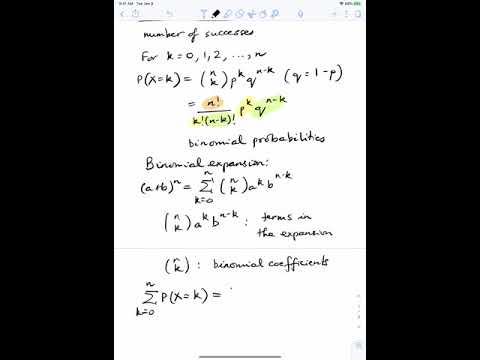 number of successes
For k = 0, 1, 2, ..., n
P(X=k) = (n k) p^k q^(n-k) (q = 1-p)
= n! / k!(n-k)! p^k q^(n-k)
binomial probabilities
Binomial expansion:
(a+b)^n = Σ_{k=0}^{n} (n k) a^k b^(n-k)
(n k) a^k b^(n-k) : terms in
the expansion
(n k) : binomial coefficients
Σ_{k=0}^{n} P(X=k) =